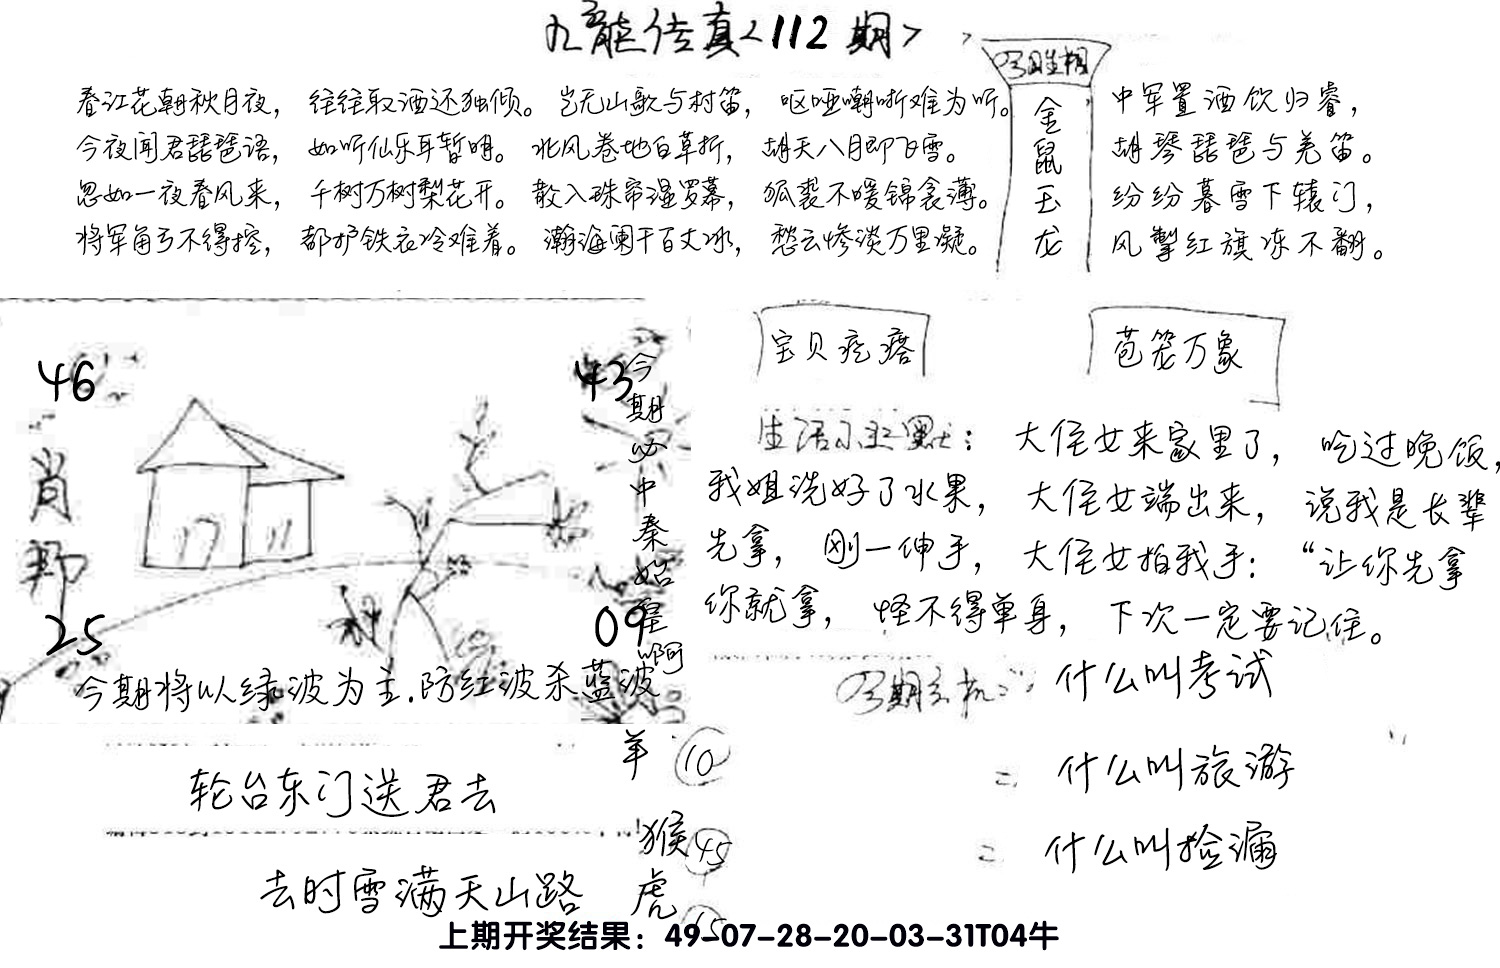 九龍传真<112期>
春江花朝秋月夜，往往取酒还独倾。岂无山歌与村笛，呕哑嘲哳难为听。
今夜闻君琵琶语，如听仙乐耳暂明。北风卷地白草折，胡天八月即飞雪。
忽如一夜春风来，千树万树梨花开。散入珠帘湿罗幕，狐裘不暖锦衾薄。
将军角弓不得控，都护铁衣冷难着。瀚海阑干百丈冰，愁云惨淡万里凝。
金鼠玉龙
中军置酒饮归客，
胡琴琵琶与羌笛。
纷纷暮雪下辕门，
风掣红旗冻不翻。
46
43
肖
25
09
今期必中秦始皇啊
今期将以绿波为主.防红波杀蓝波
宝贝疙瘩
苞笼万象
生活小幽默：大侄女来家里了，吃过晚饭，
我姐洗好了水果，大侄女端出来，说我是长辈
先拿，刚一伸手，大侄女拍我手：“让你先拿
你就拿，怪不得单身，下次一定要记住。
什么叫考试
什么叫旅游
什么叫捡漏
羊 10
猴 45
虎 15
轮台东门送君去
去时雪满天山路
上期开奖结果：49-07-28-20-03-31T04牛